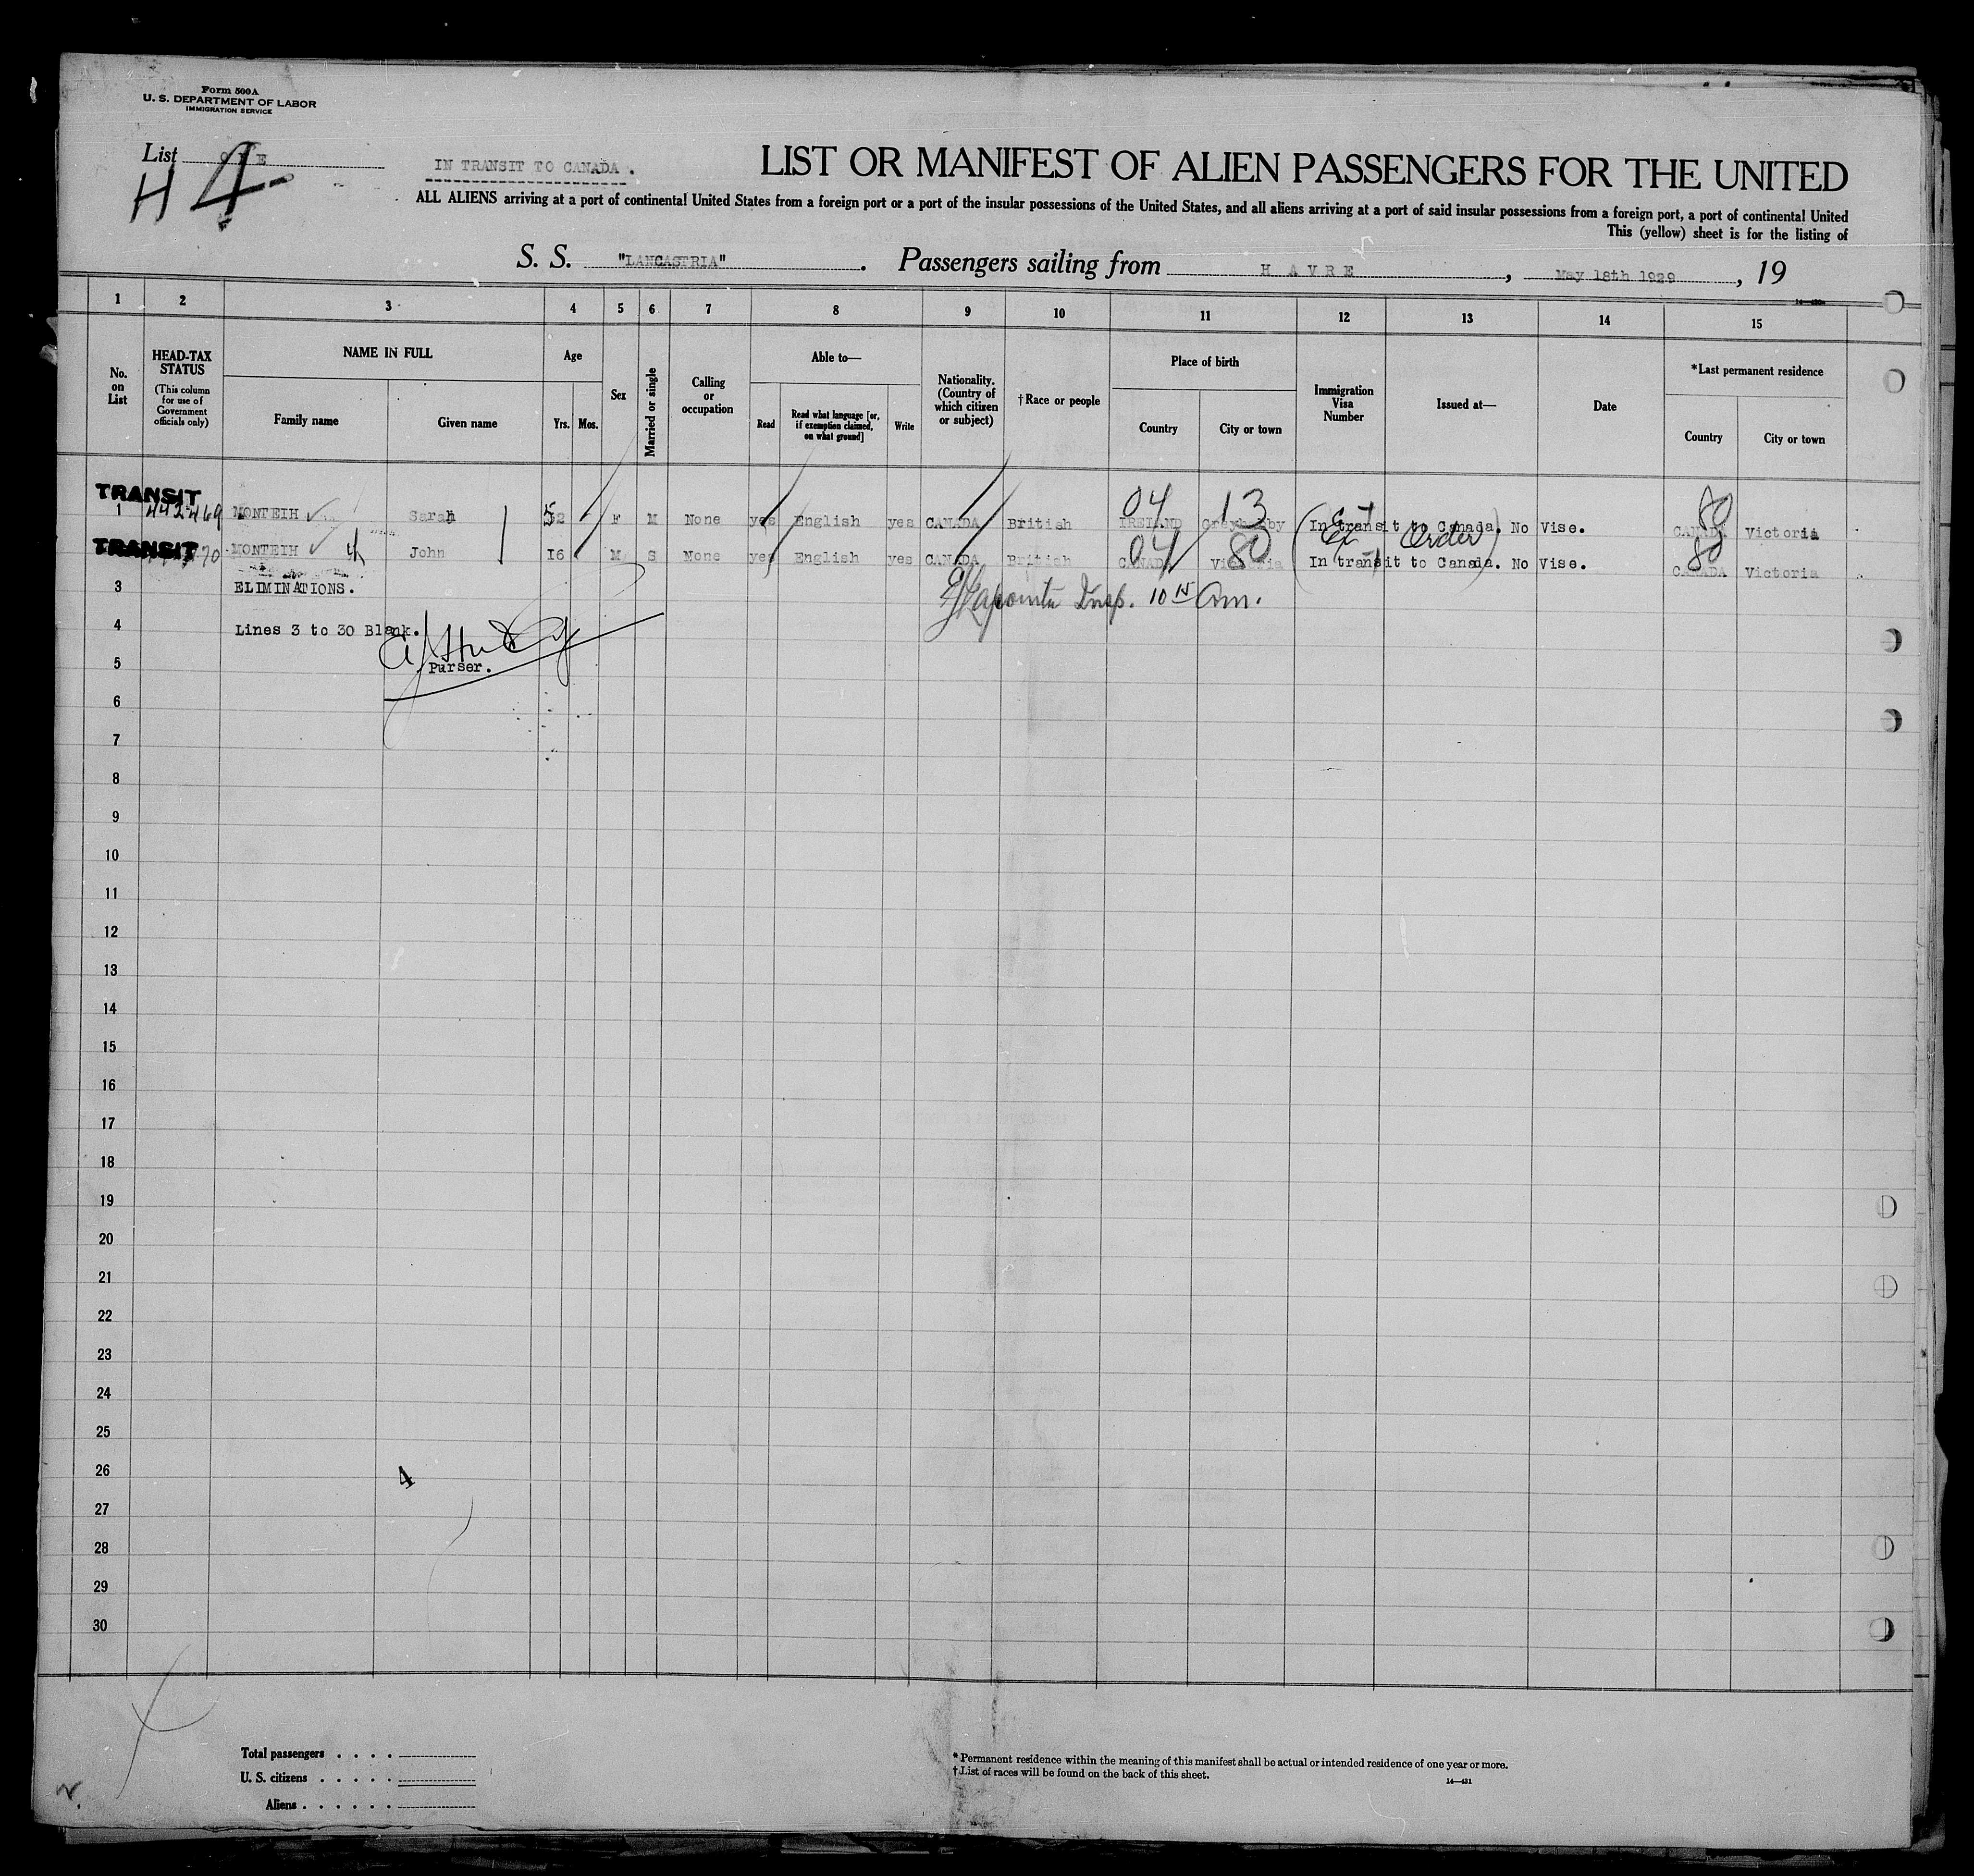 Form 500 A
U. S. DEPARTMENT OF LABOR
IMMIGRATION SERVICE
List
H 4
IN TRANSIT TO CANADA .
LIST OR MANIFEST OF ALIEN PASSENGERS FOR THE UNITED
ALL ALIENS arriving at a port of continental United States from a foreign port or a port of the insular possessions of the United States, and all aliens arriving at a port of said insular possessions from a foreign port, a port of continental United
This (yellow) sheet is for the listing of
S. S. "LANCASTRIA" . Passengers sailing from H A V R E , May 18th 1929 , 19
1 2 3 4 5 6 7 8 9 10 11 12 13 14 15
No. on List
HEAD-TAX STATUS
(This column for use of Government officials only)
NAME IN FULL
Family name Given name
Age
Yrs. Mos.
Sex
Married or single
Calling or occupation
Able to—
Read
Read what language [or, if exemption claimed, on what ground]
Write
Nationality. (Country of which citizen or subject)
†Race or people
Place of birth
Country City or town
Immigration Visa Number
Issued at—
Date
*Last permanent residence
Country City or town
TRANSIT 04 13 80
1 442469 MONTEIH Sarah 52 F M None yes English yes CANADA British IRELAND In transit to Canada. No Vise. CANADA Victoria
Ex Order 04 80 80
TRANSIT 70 MONTEIH John 16 M S None yes English yes CANADA British CANADA Victoria In transit to Canada. No Vise. CANADA Victoria
3 ELIMINATIONS.
Lapointe Insp. 10 15 am.
4 Lines 3 to 30 Blank.
5 Purser.
6
7
8
9
10
11
12
13
14
15
16
17
18
19
20
21
22
23
24
25
26 4
27
28
29
30
Total passengers . . . .
U. S. citizens . . . . .
Aliens . . . . . .
* Permanent residence within the meaning of this manifest shall be actual or intended residence of one year or more.
† List of races will be found on the back of this sheet.
14—431